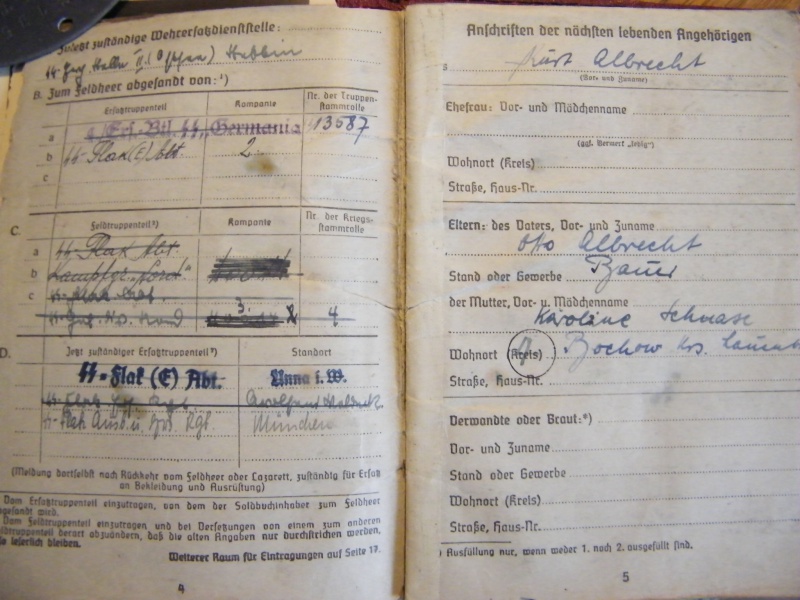 Zuletzt zuständige Wehrersatzdienststelle:
B. Zum Feldheer abgesandt von:¹)
Ersatztruppenteil Kompanie Nr. der Truppen-
stammrolle
a 4/Ers.-Btl. SS „Germania 13587
b SS-Flak(E) Abt. 2.
c
C. Feldtruppenteil²) Kompanie Nr. der Kriegs-
stammrolle
a SS-Flak Abt.
b
c
3. 4
D. Jetzt zuständiger Ersatztruppenteil³) Standort
SS-Flak (E) Abt. Unna i. W.
SS-Flak Ausb. u. Ers. Rgt. München
(Meldung dortselbst nach Rückkehr vom Feldheer oder Lazarett, zuständig für Ersatz
an Bekleidung und Ausrüstung)
Vom Ersatztruppenteil einzutragen, von dem der Soldbuchinhaber zum Feldheer
abgesandt wird.
Vom Feldtruppenteil einzutragen und bei Versetzungen von einem zum anderen
Feldtruppenteil derart abzuändern, daß die alten Angaben nur durchstrichen werden,
leserlich bleiben.
Weiterer Raum für Eintragungen auf Seite 17.
4
Anschriften der nächsten lebenden Angehörigen
Kurt Albrecht
(Vor- und Zuname)
Ehefrau: Vor- und Mädchenname
(ggf. Vermerk „ledig“)
Wohnort (Kreis)
Straße, Haus-Nr.
Eltern: des Vaters, Vor- und Zuname
Otto Albrecht
Stand oder Gewerbe Bauer
der Mutter, Vor- u. Mädchenname
Karoline Schnase
Wohnort (Kreis) Bochow Krs.
Straße, Haus-Nr.
Verwandte oder Braut:*)
Vor- und Zuname
Stand oder Gewerbe
Wohnort (Kreis)
Straße, Haus-Nr.
) Ausfüllung nur, wenn weder 1. noch 2. ausgefüllt sind.
5